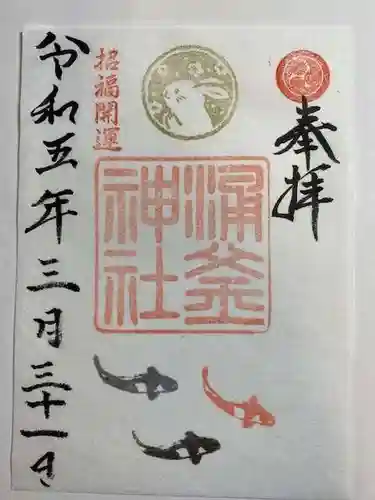 奉拝
涌釜
神社
招福開運
令和五年三月三十一日